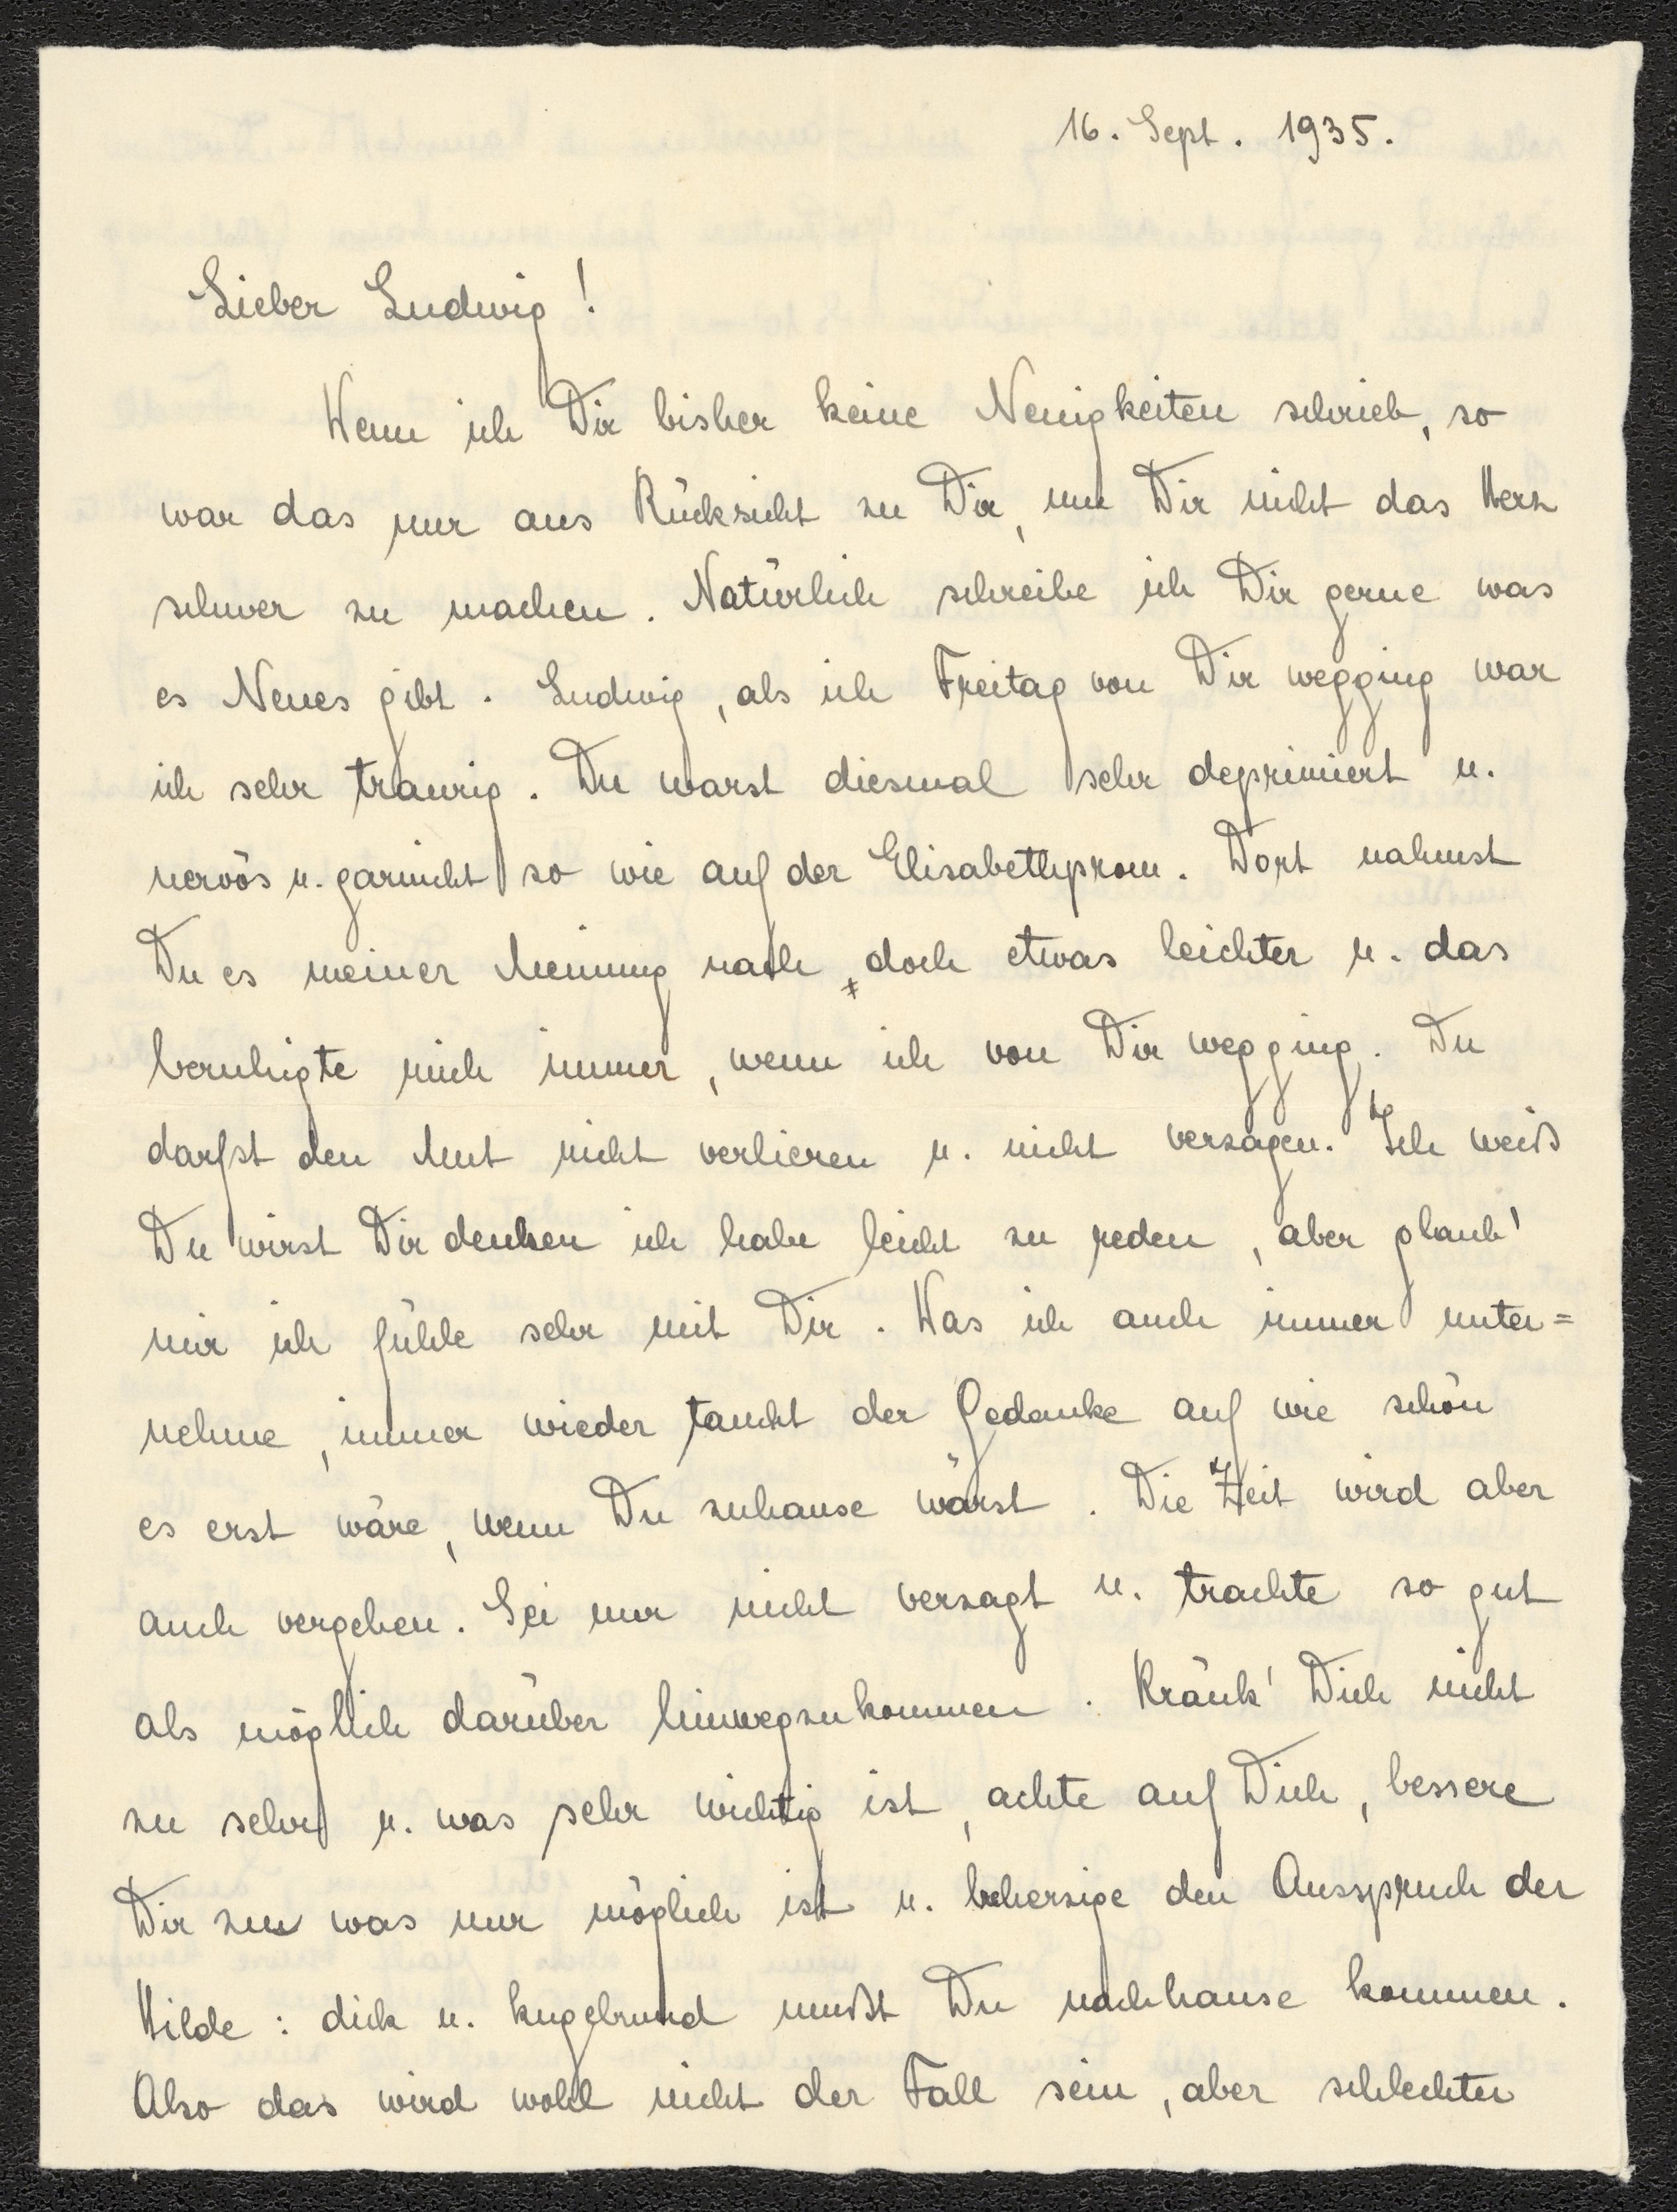 16. Sept. 1935.
Lieber Ludwig!
Wenn ich Dir bisher keine Neuigkeiten schrieb, so
war das nur aus Rücksicht zu Dir, um Dir nicht das Herz
schwer zu machen. Natürlich schreibe ich Dir gerne was
es Neues gibt. Ludwig, als ich Freitag von Dir wegging war
ich sehr traurig. Du warst diesmal sehr deprimiert u.
nervös u. garnicht so wie auf der Elisabethprom. Dort nahmst
Du es meiner Meinung nach, doch etwas leichter u. das
beruhigte mich immer, wenn ich von Dir wegging. Du
darfst den Mut nicht verlieren u. nicht verzagen. Ich weiß
Du wirst Dir denken ich habe leicht zu reden, aber glaub'
mir ich fühle sehr mit Dir. Was ich auch immer unter=
nehme, immer wieder taucht der Gedanke auf wie schön
es erst wäre, wenn Du zuhause wärst. Die Zeit wird aber
auch vergehen. Sei nur nicht verzagt u. trachte so gut
als möglich darüber hinwegzukommen. Kränk' Dich nicht
zu sehr u. was sehr wichtig ist, achte auf Dich, bessere
Dir zu was nur möglich ist u. beherzige den Ausspruch der
Hilde: dick u. kugelrund mußt Du nachhause kommen.
Also das wird wohl nicht der Fall sein, aber schlechter